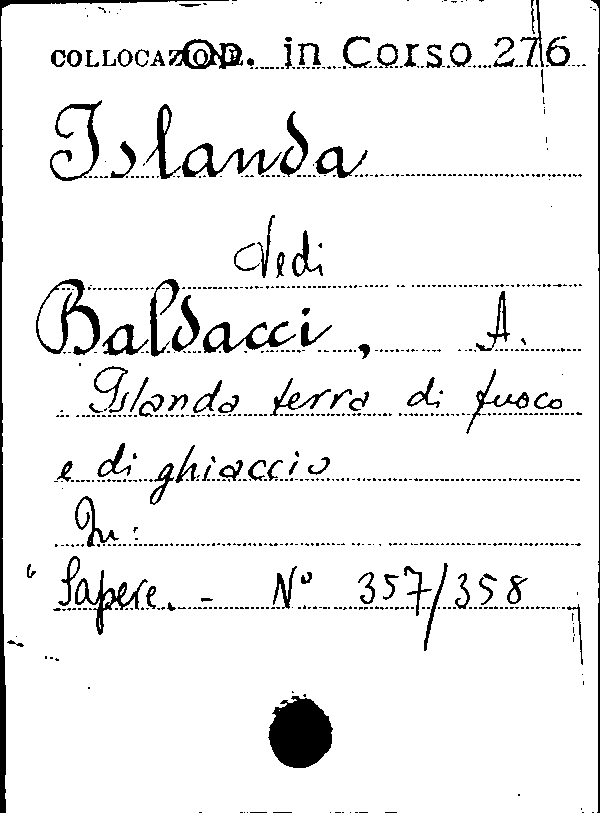 COLLOCAZIONE Op. in Corso 276
Islanda
Vedi
Baldacci, A.
Islanda terra di fuoco
e di ghiaccio
In:
Sapere. - N° 357/358